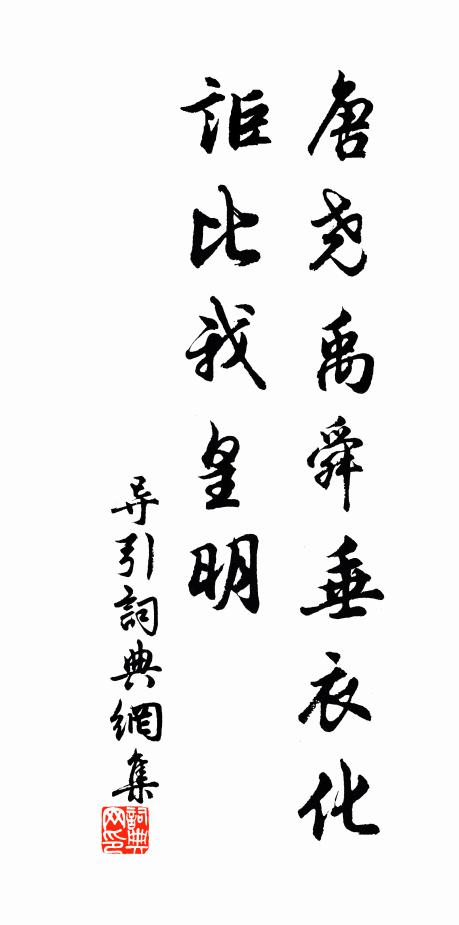 唐尧禹舜垂衣化
詎比我皇明
导引詞典網集
詞典网印